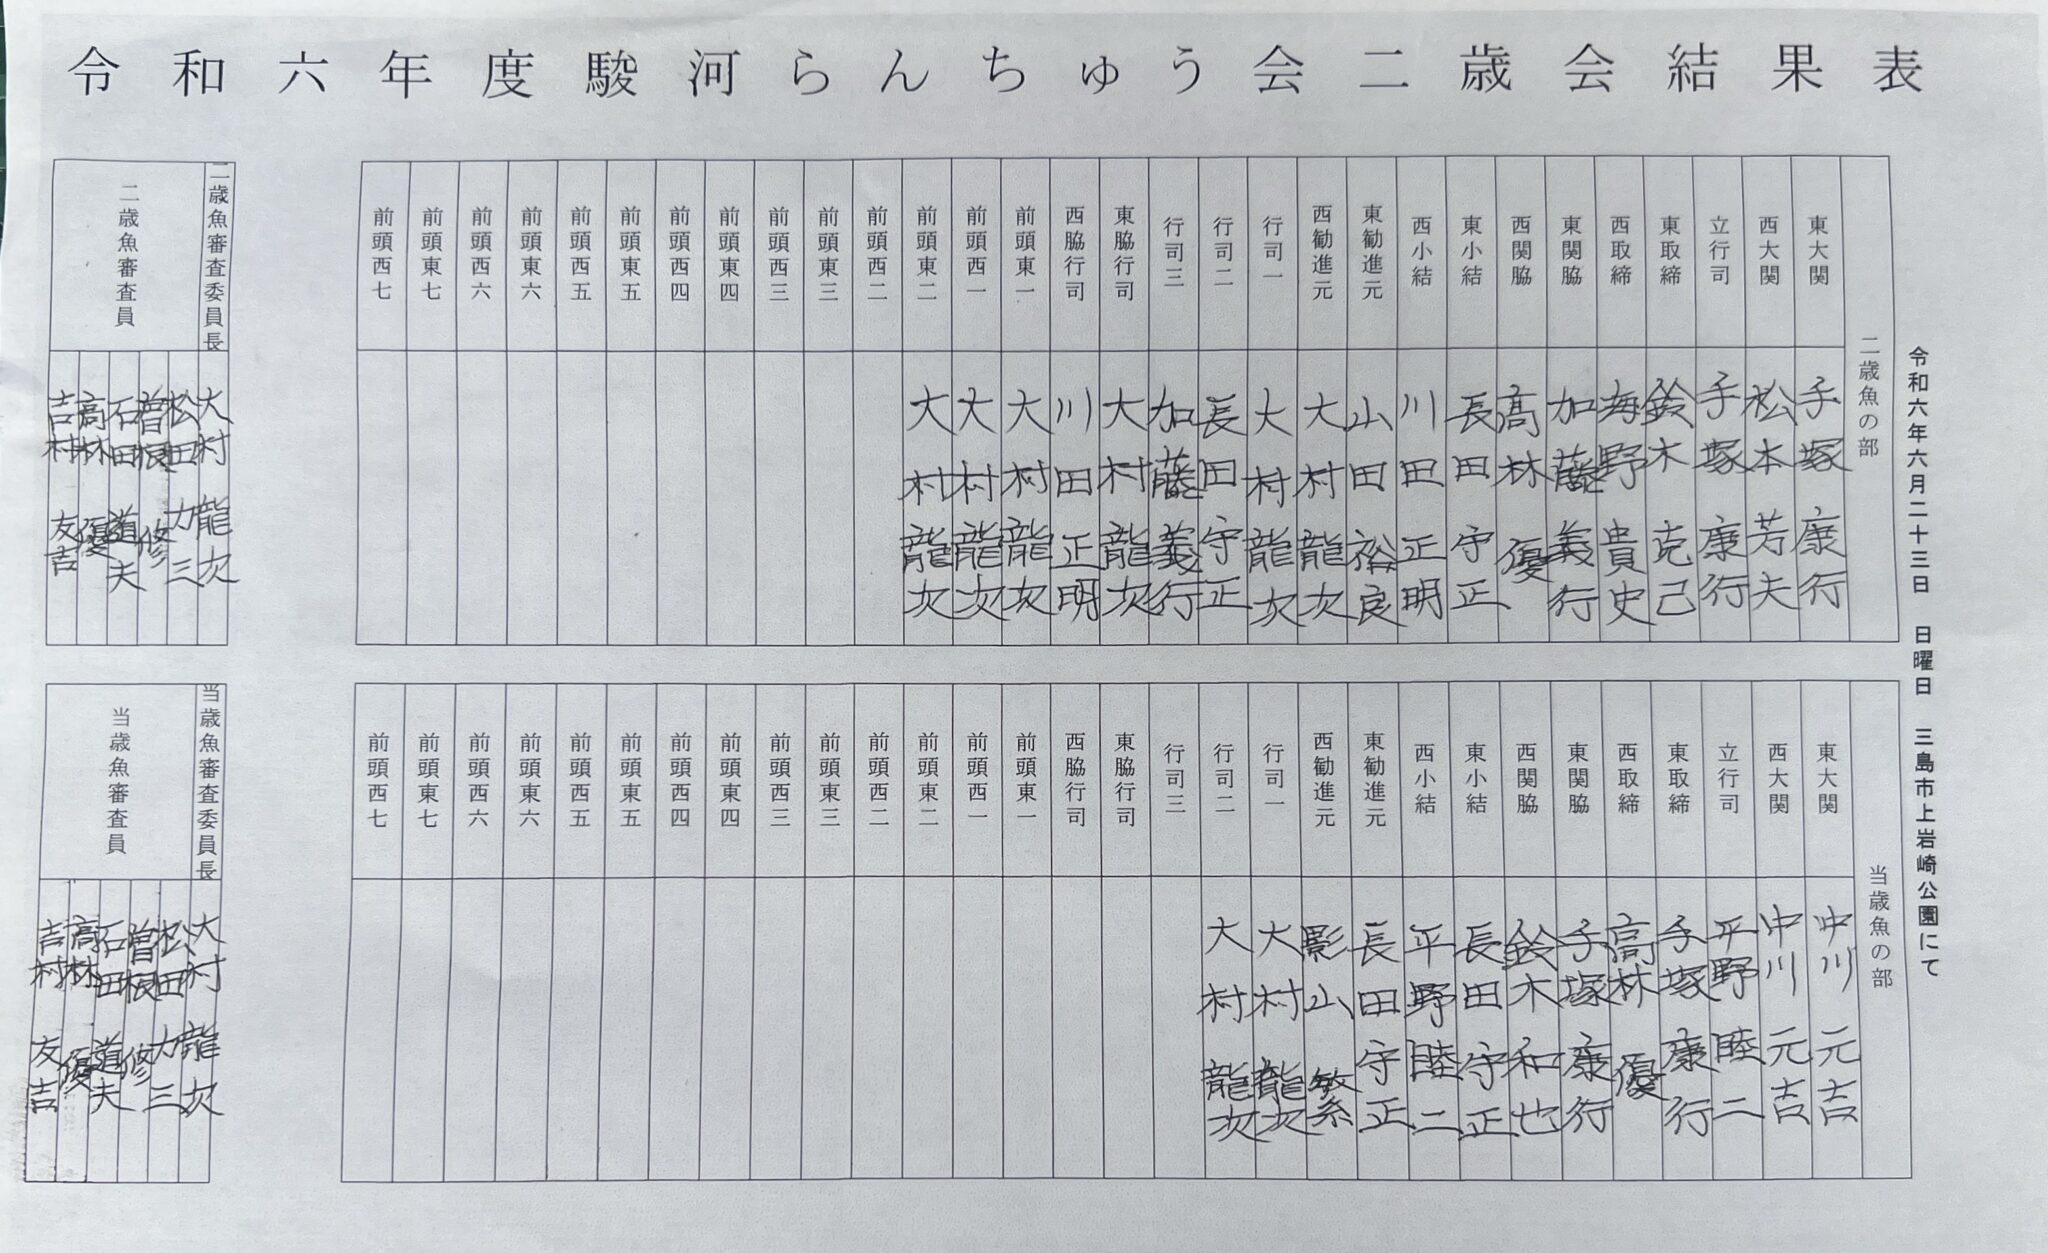 令和六年度駿河らんちゅう会二歳会結果表
令和六年六月二十三日 日曜日 三島市上岩崎公園にて
二歳魚の部
東大関 手塚 康行
西大関 松本 芳夫
立行司 手塚 康行
東取締 鈴木 克己
西取締 海野 貴史
東関脇 加藤 義行
西関脇 高林 優
東小結 長田 守正
西小結 川田 正明
東勧進元 山田 裕良
西勧進元 大村 龍次
行司一 大村 龍次
行司二 長田 守正
行司三 加藤 義行
東脇行司 大村 龍次
西脇行司 川田 正明
前頭東一 大村 龍次
前頭西一 大村 龍次
前頭東二 大村 龍次
前頭西二
前頭東三
前頭西三
前頭東四
前頭西四
前頭東五
前頭西五
前頭東六
前頭西六
前頭東七
前頭西七
二歳魚審査委員長 大村 龍次
二歳魚審査員
松田 力三
曽根 修
石田 道夫
高林 優
吉村 友吉
当歳魚の部
東大関 中川 元吉
西大関 中川 元吉
立行司 平野 睦二
東取締 手塚 康行
西取締 高林 優
東関脇 手塚 康行
西関脇 鈴木 和也
東小結 長田 守正
西小結 平野 睦二
東勧進元 長田 守正
西勧進元 影山 繁
行司一 大村 龍次
行司二 大村 龍次
行司三
東脇行司
西脇行司
前頭東一
前頭西一
前頭東二
前頭西二
前頭東三
前頭西三
前頭東四
前頭西四
前頭東五
前頭西五
前頭東六
前頭西六
前頭東七
前頭西七
当歳魚審査委員長 大村 龍次
当歳魚審査員
松田 力三
曽根 修
石田 道夫
高林 優
吉村 友吉